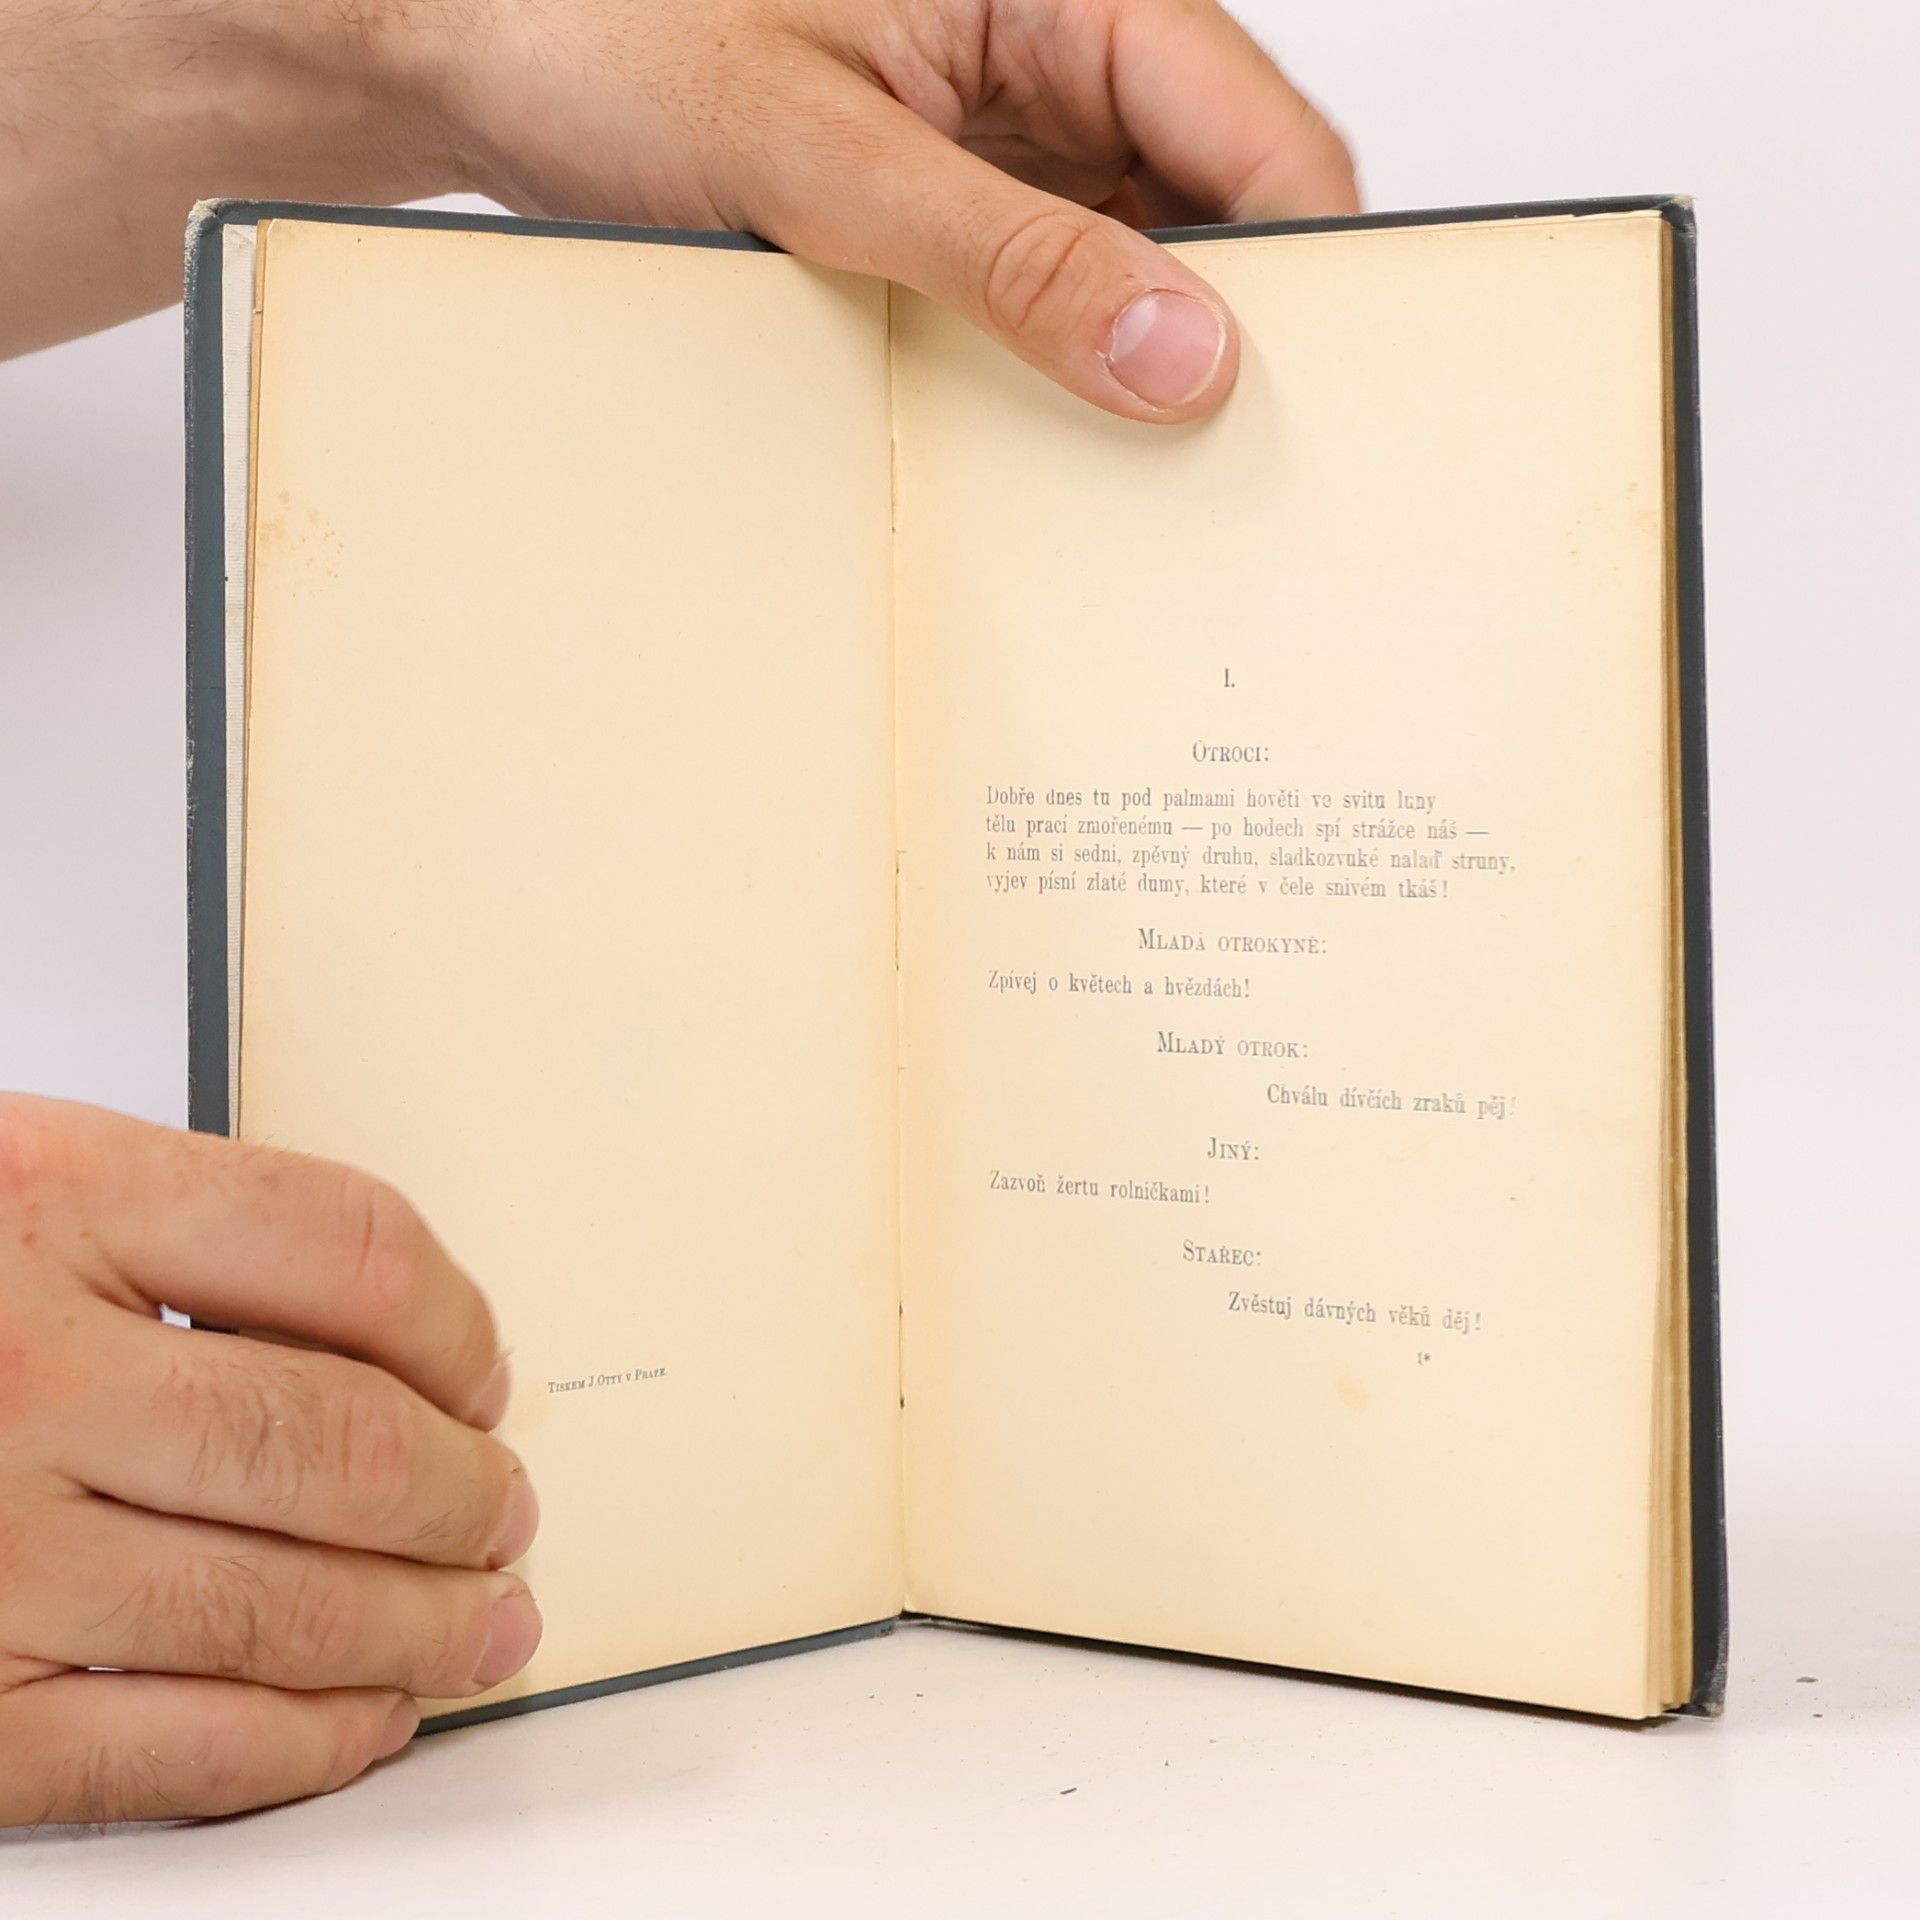 Tiskem J. Otty v Praze.
I.
Otroci:
Dobře dnes tu pod palmami hověti ve svitu luny
tělu prací zmořenému — po hodech spí strážce náš —
k nám si sedni, zpěvný druhu, sladkozvuké nalaď struny,
vyjev písní zlaté dumy, které v čele snivém tkáš!
Mladá otrokyně:
Zpívej o květech a hvězdách!
Mladý otrok:
Chválu dívčích zraků pěj!
Jiný:
Zazvoň žertu rolničkami!
Stařec:
Zvěstuj dávných věků děj!
1*